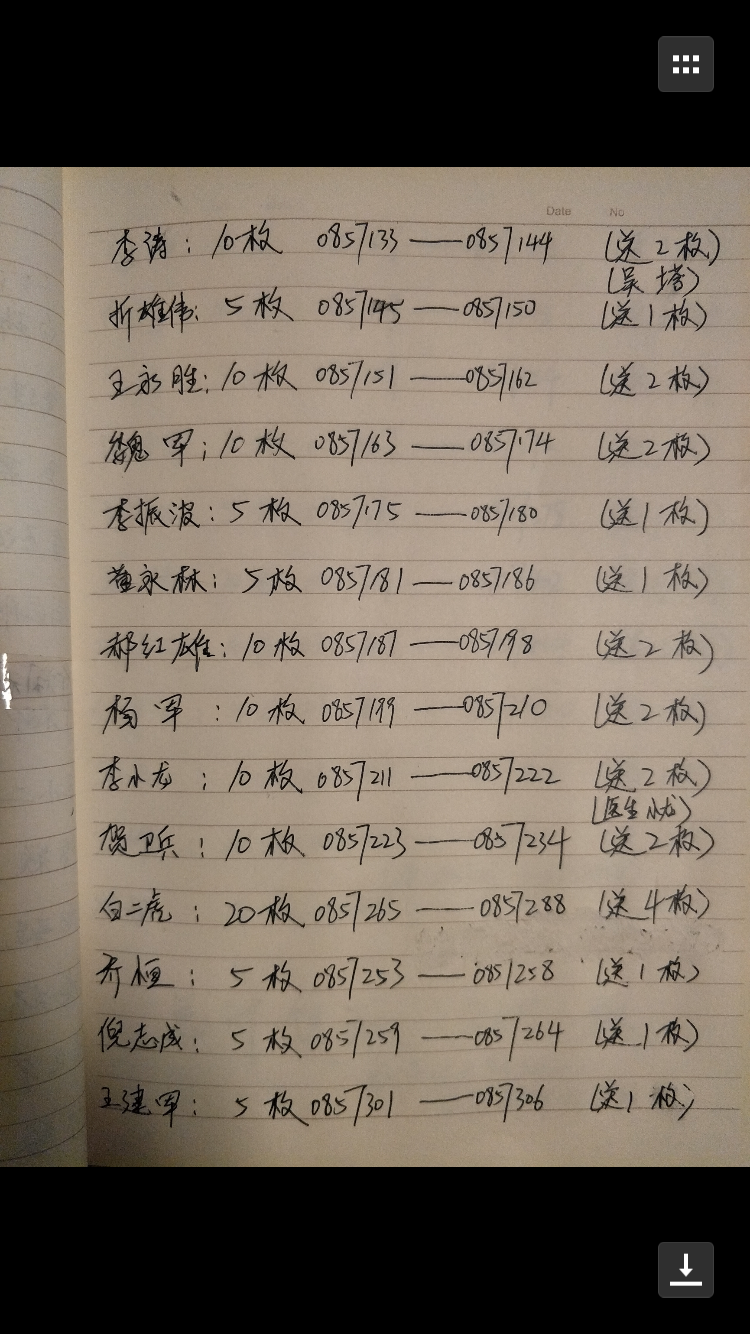 Date No
李涛：10枚 0857133——0857144 (送2枚)
(吴塔)
折雄伟：5枚 0857145——0857150 (送1枚)
王永胜：10枚 0857151——0857162 (送2枚)
魏军：10枚 0857163——0857174 (送2枚)
李振波：5枚 0857175——0857180 (送1枚)
董永林：5枚 0857181——0857186 (送1枚)
郝红雄：10枚 0857187——0857198 (送2枚)
杨军：10枚 0857199——0857210 (送2枚)
李小龙：10枚 0857211——0857222 (送2枚)
(医生小龙)
贺卫兵：10枚 0857223——0857234 (送2枚)
白二虎：20枚 0857265——0857288 (送4枚)
乔恒：5枚 0857253——0857258 (送1枚)
倪志成：5枚 0857259——0857264 (送1枚)
王建军：5枚 0857301——0857306 (送1枚)